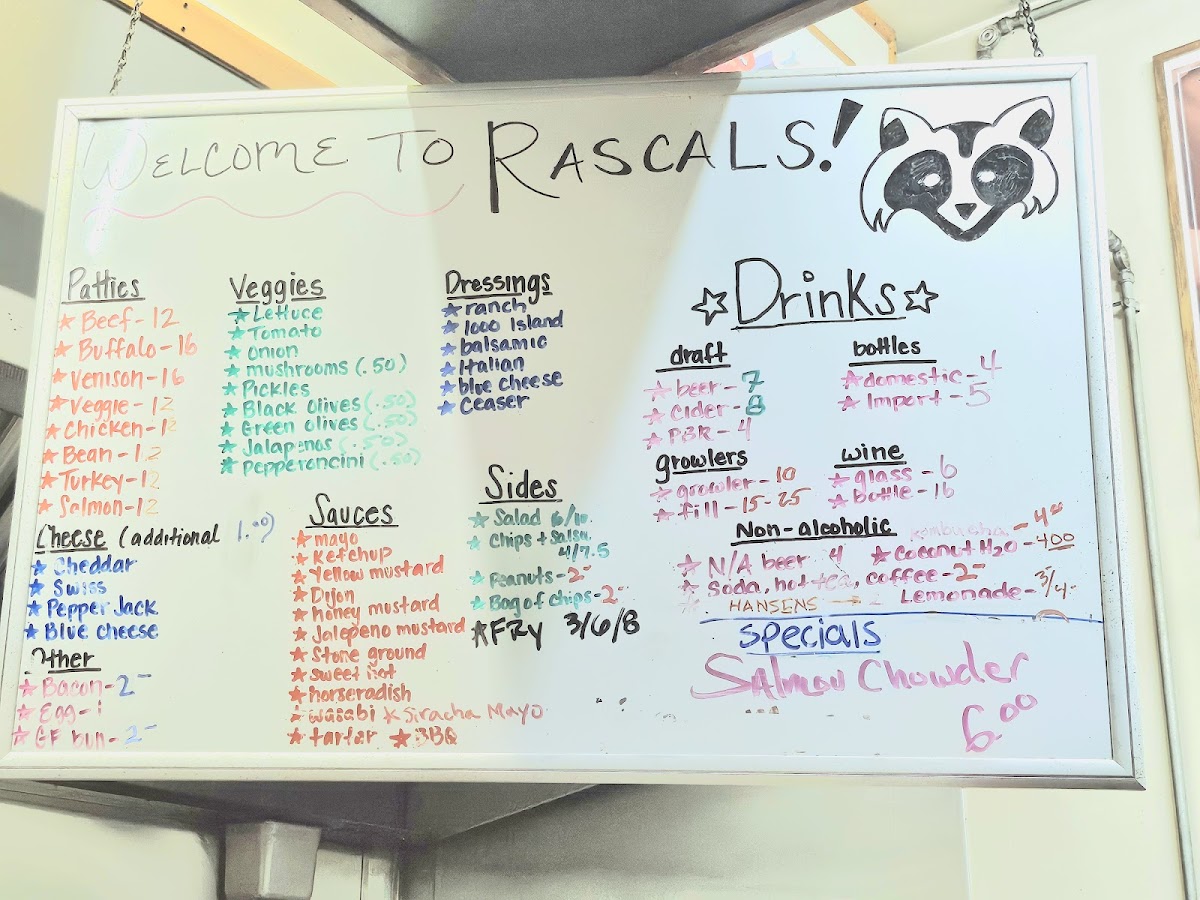 WELCOME TO RASCALS!
Patties
Beef - 12
Buffalo - 16
Venison - 16
Veggie - 12
Chicken - 12
Bean - 12
Turkey - 12
Salmon - 12
Cheese (additional 1.00)
Cheddar
Swiss
Pepper Jack
Blue cheese
Other
Bacon - 2-
Egg - 1
GF bun - 2-
Veggies
Lettuce
Tomato
onion
mushrooms (.50)
Pickles
Black olives (.50)
Green olives (.50)
Jalapenos (.50)
pepperoncini (.50)
Sauces
mayo
Ketchup
Yellow mustard
Dijon
honey mustard
Jalepeno mustard
Stone ground
sweet hot
horseradish
wasabi Siracha Mayo
tartar BBQ
Dressings
ranch
1000 Island
balsamic
Italian
blue cheese
Ceaser
Sides
Salad 6/10
Chips + Salsa
4/7.5
Peanuts - 2-
Bag of chips - 2-
FRY 3/6/8
Drinks
draft
beer - 7
Cider - 8
PBR - 4
growlers
growler - 10
fill - 15-25
bottles
domestic - 4
Import - 5
wine
glass - 6
bottle - 16
Non-alcoholic
Kombucha - 4-
N/A beer 4
Coconut H2O - 400
Soda, hot tea, coffee - 2-
HANSENS 2
Lemonade - 3/4-
specials
Salmon Chowder
6.00